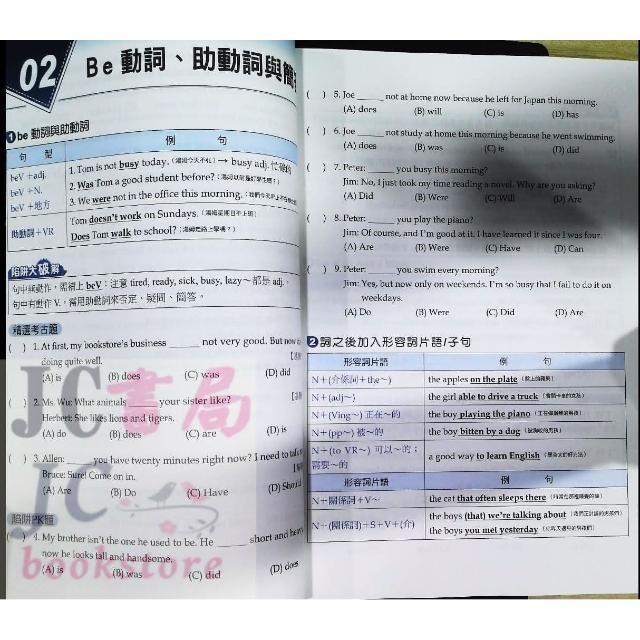 02
Be 動詞、助動詞與簡
1 be 動詞與助動詞
句 型
例 句
beV +adj.
beV +N.
beV +地方
1. Tom is not busy today. → busy adj.
2. Was Tom a good student before?
3. We were not in the office this morning.
助動詞+VR
Tom doesn't work on Sundays.
Does Tom walk to school?
陷阱大破解
句中無動作,需補上 beV:注意 tired, ready, sick, busy, lazy~都是 adj.
句中有動作 V,需用助動詞來否定、疑問、簡答。
精選考古題
( ) 1. At first, my bookstore's business ______ not very good. But now
doing quite well.
(A) is (B) does (C) was (D) did
( ) 2. Ms. Wu: What animals ______ your sister like?
Herbert: She likes lions and tigers.
(A) do (B) does (C) are (D) is
( ) 3. Allen: ______ you have twenty minutes right now? I need to talk
Bruce: Sure! Come on in.
(A) Are (B) Do (C) Have (D) Should
陷阱PK題
( ) 4. My brother isn't the one he used to be. He ______ short and heavy
now he looks tall and handsome.
(A) is (B) was (C) did (D) does
( ) 5. Joe ______ not at home now because he left for Japan this morning.
(A) does (B) will (C) is (D) has
( ) 6. Joe ______ not study at home this morning because he went swimming.
(A) does (B) was (C) is (D) did
( ) 7. Peter: ______ you busy this morning?
Jim: No, I just took my time reading a novel. Why are you asking?
(A) Did (B) Were (C) Will (D) Are
( ) 8. Peter: ______ you play the piano?
Jim: Of course, and I'm good at it. I have learned it since I was four.
(A) Are (B) Were (C) Have (D) Can
( ) 9. Peter: ______ you swim every morning?
Jim: Yes, but now only on weekends. I'm so busy that I fail to do it on
weekdays.
(A) Do (B) Were (C) Did (D) Are
2 詞之後加入形容詞片語/子句
形容詞片語
例 句
N+(介係詞+the~)
the apples on the plate
N+(adj~)
the girl able to drive a truck
N+(Ving~) 正在~的
the boy playing the piano
N+(pp~) 被~的
the boy bitten by a dog
N+(to VR~) 可以~的;
需要~的
a good way to learn English
形容詞片語
例 句
N+關係詞+V~
the cat that often sleeps there
N+(關係詞)+S+V+(介)
the boys (that) we're talking about
the boys you met yesterday
JC書局
JC
bookstore